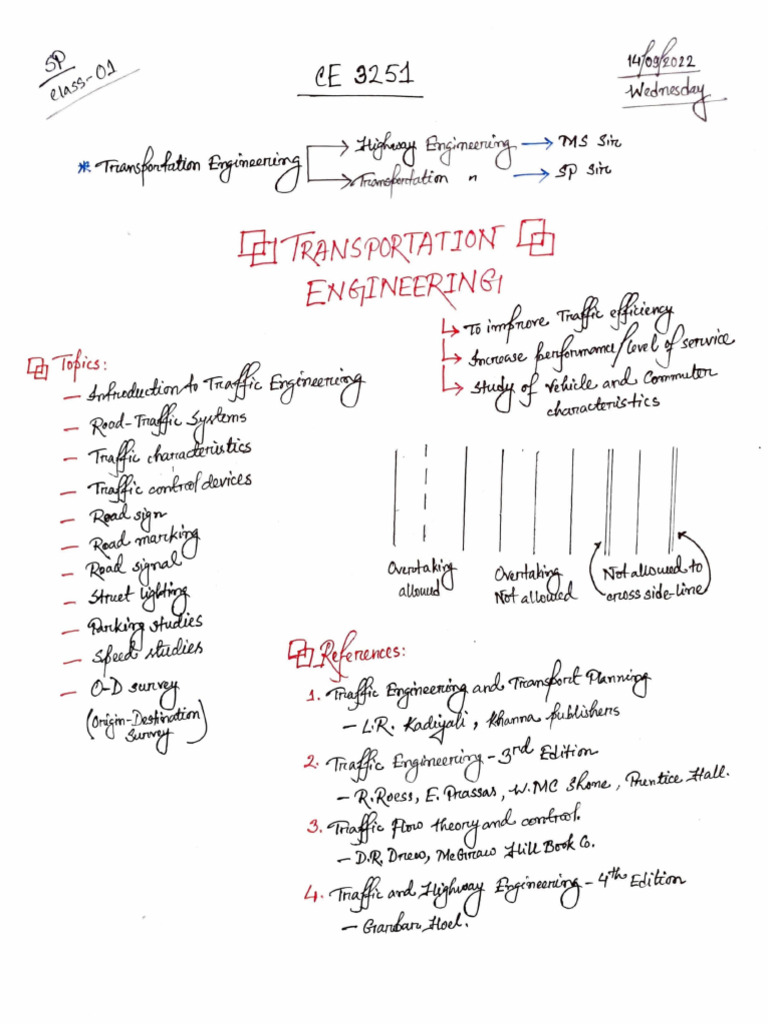 SP
class-01
CE 3251
14/09/2022
Wednesday
* Transportation Engineering
Highway Engineering → MS Sir
Transportation " → SP Sir
TRANSPORTATION
ENGINEERING
To improve Traffic efficiency
Increase performance/level of service
Study of vehicle and commuter
characteristics
Topics:
– Introduction to Traffic Engineering
– Road-Traffic Systems
– Traffic characteristics
– Traffic control devices
– Road sign
– Road marking
– Road signal
– Street lighting
– Parking studies
– Speed studies
– O-D survey
(Origin-Destination
Survey)
Overtaking
allowed
Overtaking
Not allowed
Not allowed to
cross side-line
References:
1. Traffic Engineering and Transport Planning
– L.R. Kadiyali, Khanna publishers
2. Traffic Engineering – 3rd Edition
– R. Roess, E. Prassas, W. MC Shone, Prentice Hall.
3. Traffic flow theory and control.
– D.R. Drew, McGraw Hill Book Co.
4. Traffic and Highway Engineering – 4th Edition
– Garbar, Hoel.